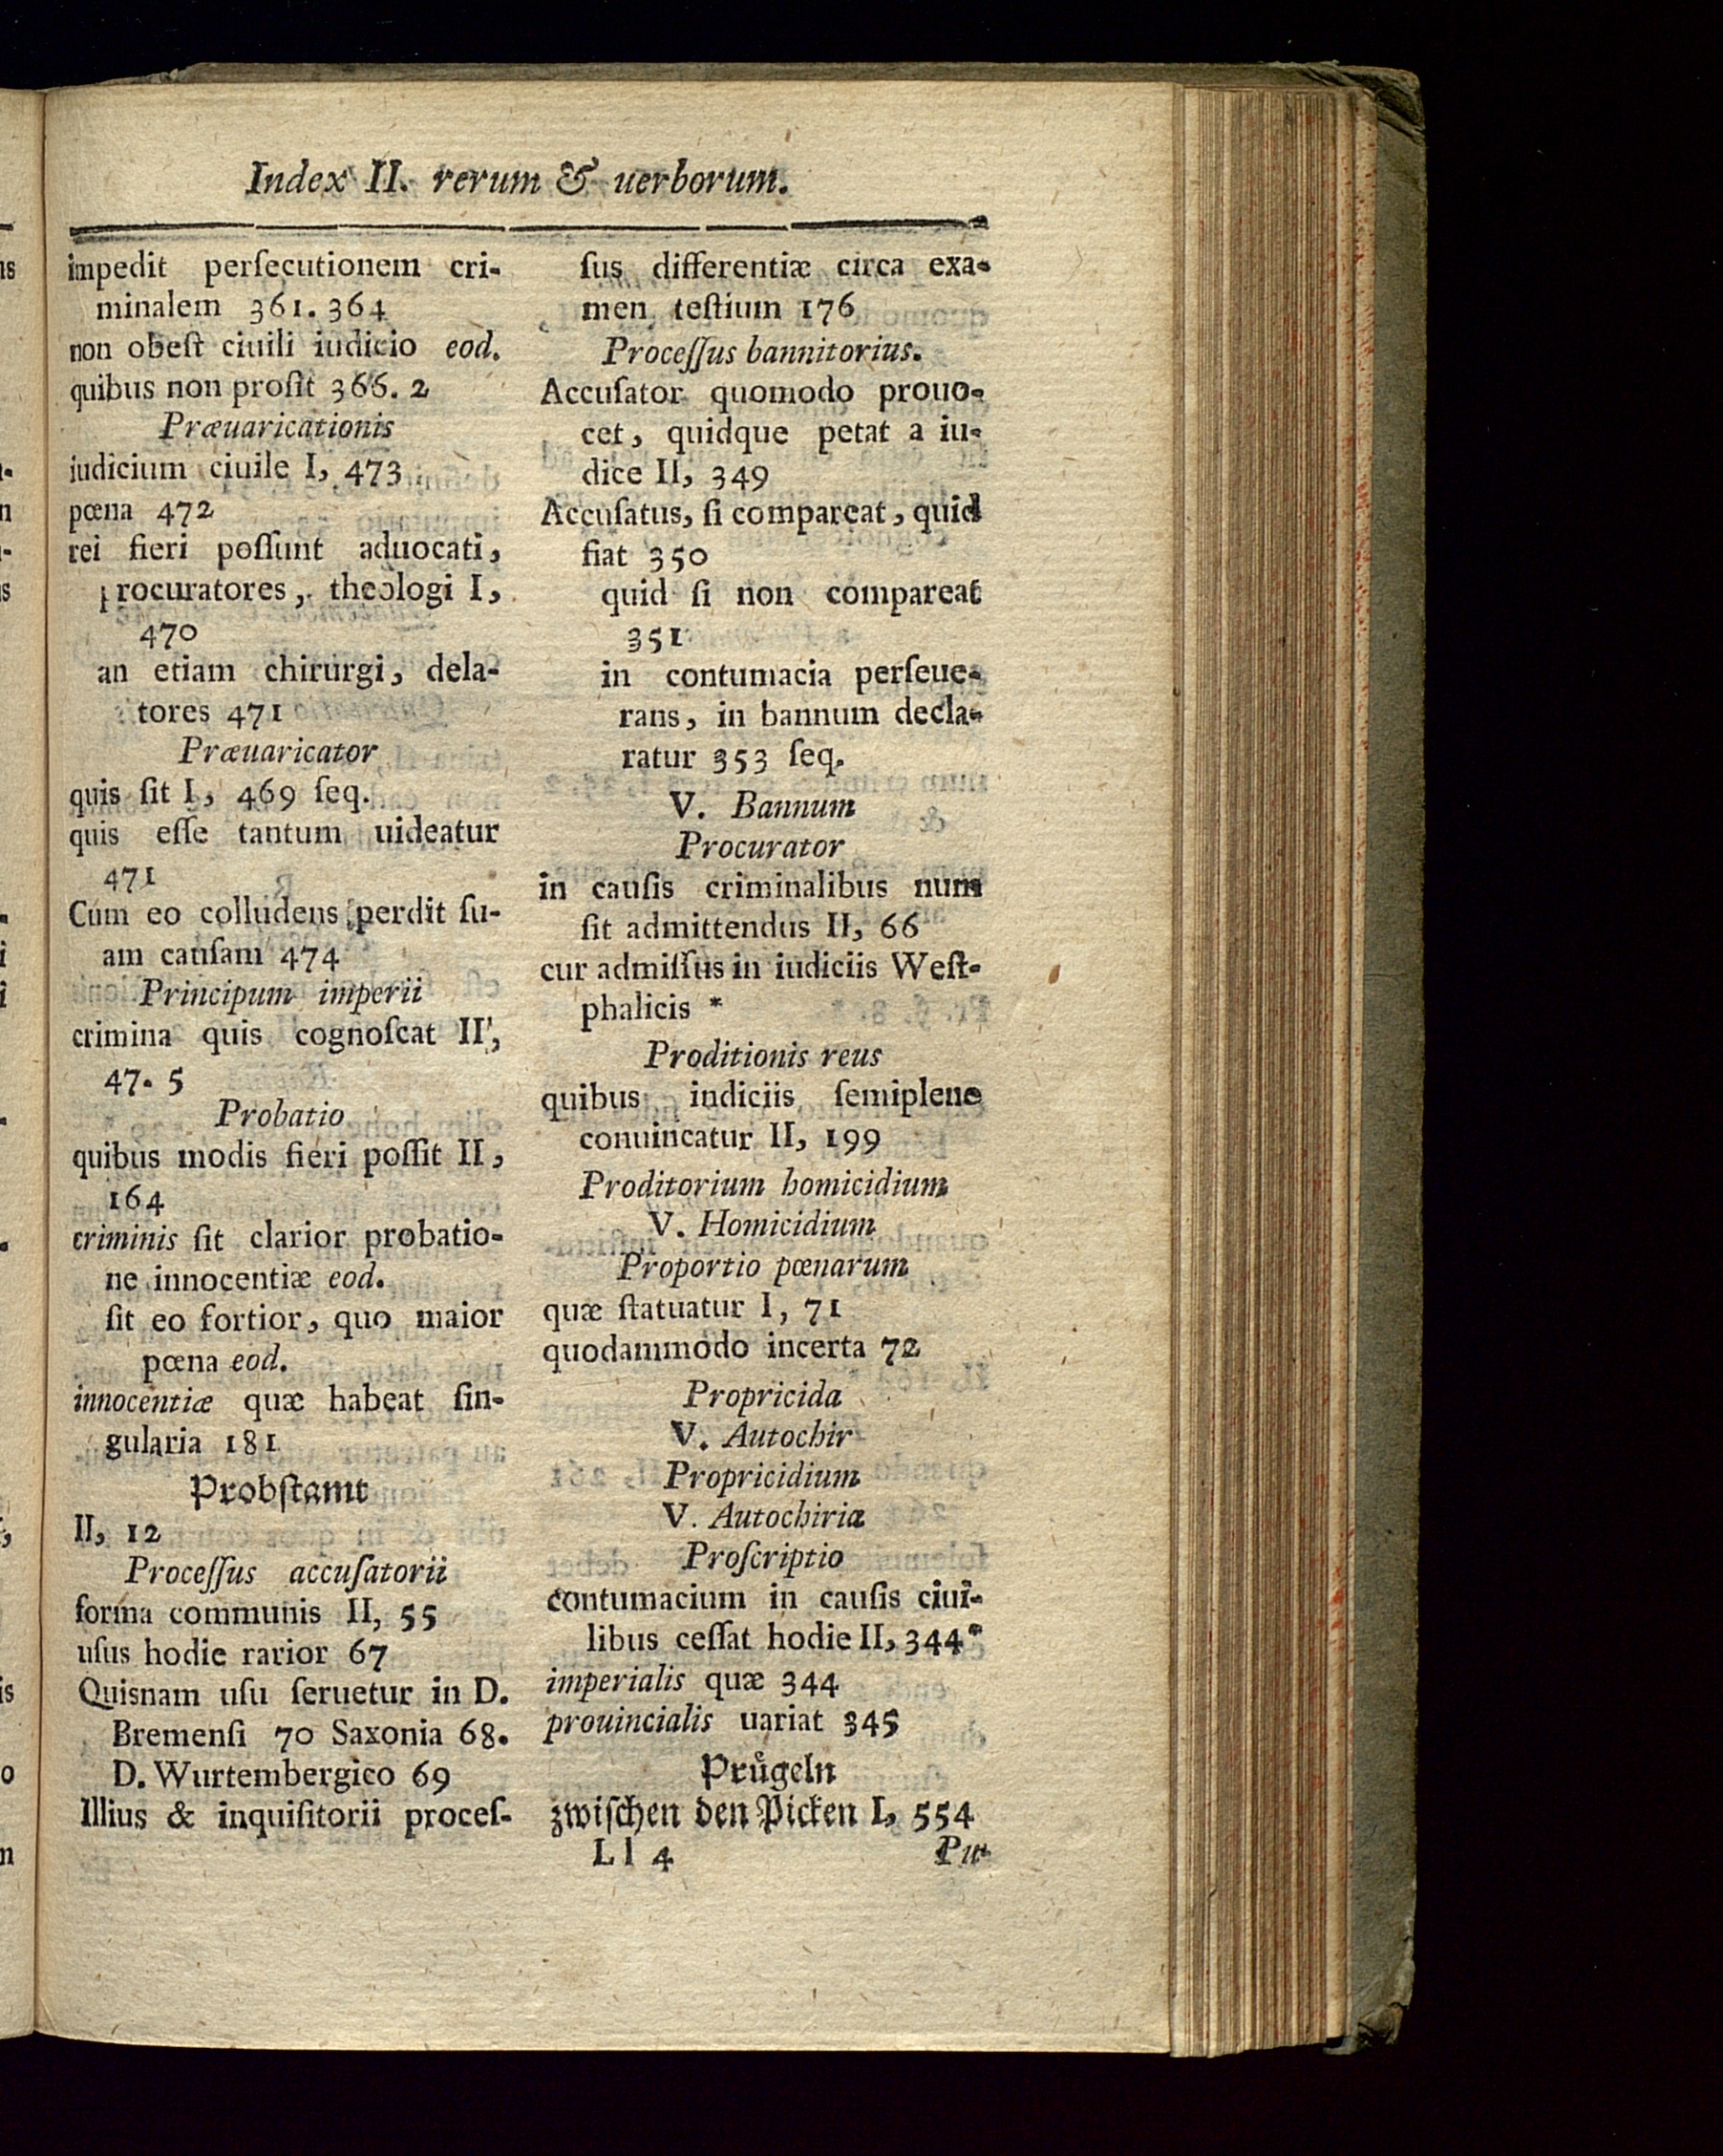 Index II. rerum & uerborum.
impedit perſecutionem cri-
minalem 361. 364
non obeſt ciuili iudicio eod.
quibus non proſit 366. 2
Præuaricationis
iudicium ciuile I, 473
pœna 472
rei fieri poſſunt aduocati,
procuratores, theologi I,
470
an etiam chirurgi, dela-
tores 471
Præuaricator
quis ſit I, 469 ſeq.
quis eſſe tantum uideatur
471
Cum eo colludens perdit ſu-
am cauſam 474
Principum imperii
crimina quis cognoſcat II,
47. 5
Probatio
quibus modis fieri poſſit II,
164
criminis ſit clarior probatio-
ne innocentiæ eod.
ſit eo fortior, quo maior
pœna eod.
innocentiæ quæ habeat ſin-
gularia 181
Probſtamt
II, 12
Proceſſus accuſatorii
forma communis II, 55
uſus hodie rarior 67
Quisnam uſu ſeruetur in D.
Bremenſi 70 Saxonia 68.
D. Wurtembergico 69
Illius & inquiſitorii proceſ-
ſus differentiæ circa exa-
men teſtium 176
Proceſſus bannitorius.
Accuſator quomodo prouo-
cet, quidque petat a iu-
dice II, 349
Accuſatus, ſi compareat, quid
fiat 350
quid ſi non compareat
351
in contumacia perſeue-
rans, in bannum decla-
ratur 353 ſeq.
V. Bannum
Procurator
in cauſis criminalibus num
ſit admittendus II, 66
cur admiſſus in iudiciis Weſt-
phalicis *
Proditionis reus
quibus indiciis ſemiplene
conuincatur II, 199
Proditorium homicidium
V. Homicidium
Proportio pœnarum
quæ ſtatuatur I, 71
quodammodo incerta 72
Propricida
V. Autochir
Propricidium
V. Autochiria
Proſcriptio
contumacium in cauſis ciui-
libus ceſſat hodie II, 344*
imperialis quæ 344
prouincialis uariat 345
Pruͤgeln
zwiſchen den Picken I, 554
Ll 4
Pu-